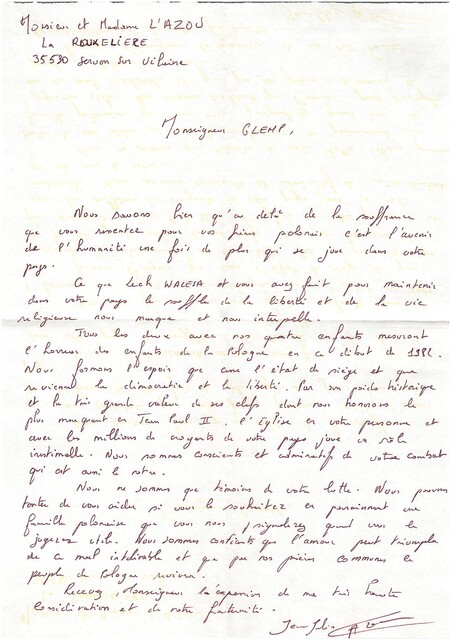 Monsieur et Madame L'AZOU
La ROUXELIERE
35530 Servon sur Vilaine
Monseigneur GLEMP,
Nous savons bien qu'au delà de la souffrance
que vous ressentez pour vos frères polonais c'est l'avenir
de l'humanité une fois de plus qui se joue dans votre
pays.
Ce que Lech WALESA et vous avez fait pour maintenir
dans votre pays le souffle de la liberté et de la vie
religieuse nous marque et nous interpelle.
Tous les deux avec nos quatre enfants mesurons
l'horreur des enfants de la Pologne en ce début de 1982.
Nous formons l'espoir que cesse l'état de siège et que
revienne la démocratie et la liberté. Par son poids historique
et la très grande valeur de ses chefs dont nous honorons le
plus marquant en Jean Paul II, l'Eglise en votre personne et
avec les millions de croyants de votre pays joue un rôle
inestimable. Nous sommes conscients et admiratifs de votre combat
qui est aussi le notre.
Nous ne sommes que témoins de votre lutte. Nous pouvons
tenter de vous aider si vous le souhaitez en parrainant une
famille polonaise que vous nous signalerez quand vous le
jugerez utile. Nous sommes confiants que l'amour peut triompher
de ce mal intolérable et que par nos prières communes le
peuple de Pologne revivra.
Recevez, Monseigneur l'expression de ma très haute
considération et de notre fraternité.